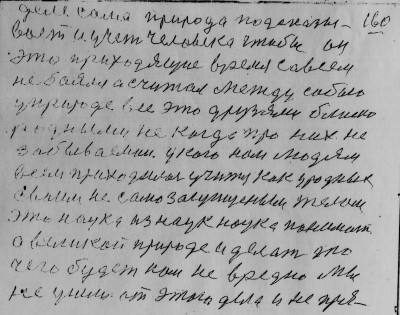 деле сама природа подсказы- 160
вает и учет человека чтобы он
это приходящие время совсем
не боялся а считал между собою
у природе все это друзьями близко
родными не когда про них не
забываемыи у кого нам людям
всем приходилос учитца как у родных
своим не само заслуженным телом
это наука из наук наука понимат
о великой природе и делат это
чего будет нам не вредно мы
не ушли от этого дела и не при-